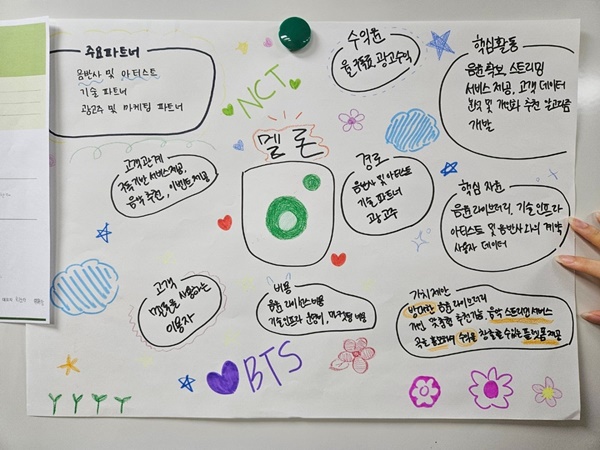 주요파트너
음반사 및 아티스트
기술 파트너
광고주 및 마케팅 파트너
NCT
수익원
월 구독료, 광고수익
핵심활동
음원확보, 스트리밍
서비스 제공, 고객 데이터
분석 및 개인화 추천 알고리즘
개발
멜론
고객관계
구독기반 서비스제공
음악 추천, 이벤트 제공
경로
음반사 및 아티스트
기술 파트너
광고주
핵심 자원
음원 라이브러리, 기술 인프라
아티스트 및 음반사와의 계약
사용자 데이터
고객
멜론을 사용하는
이용자
비용
음원 라이센스 비용
기술인프라 운영비, 마케팅 비용
가치제안
방대한 음원 라이브러리
개인 맞춤형 추천기능, 음악 스트리밍 서비스
수익을 창출할 수 있는 플랫폼 제공
BTS